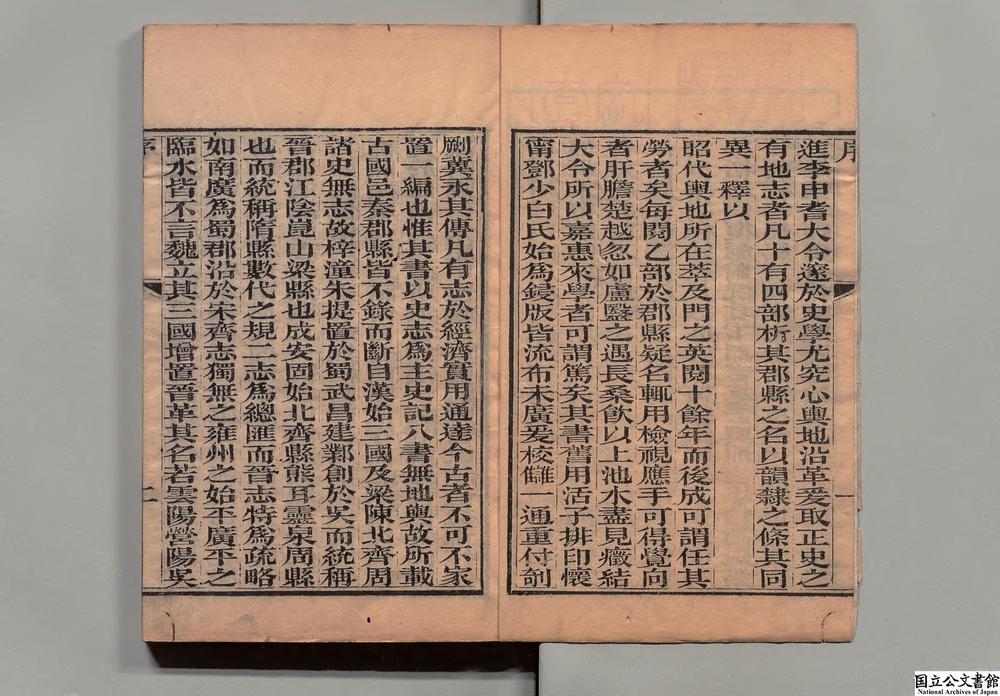 序
進李申耆大令邃於史學尤究心輿地沿革爰取正史之
有地志者凡十有四部析其郡縣之名以韻隸之條其同
異一釋以
昭代輿地所在萃及門之英閱十餘年而後成可謂任其
勞者矣每閱乙部於郡縣疑名輒用檢視應手可得覺向
者肝膽楚越忽如盧醫之遇長桑飲以上池水盡見癥結
大令所以嘉惠來學者可謂篤矣其書舊用活子排印懷
甯鄧少白氏始為鋟版皆流布未廣爰校讎一通重付剞
一
劂冀永其傳凡有志於經濟實用通達今古者不可不家
置一編也惟其書以史志為主史記八書無地輿故所載
古國邑秦郡縣皆不錄而斷自漢始三國及梁陳北齊周
諸史無志故梓潼朱提置於蜀武昌建鄴創於吳而統稱
晉郡江陰崑山梁縣也成安固始北齊縣熊耳靈泉周縣
也而統稱隋縣數代之規二志為總匯而晉志特為疏略
如南廣為蜀郡沿於宋齊志獨無之雍州之始平廣平之
臨水皆不言魏立其三國增置晉革其名若雲陽營陽吳
序
二
国立公文書館
National Archives of Japan